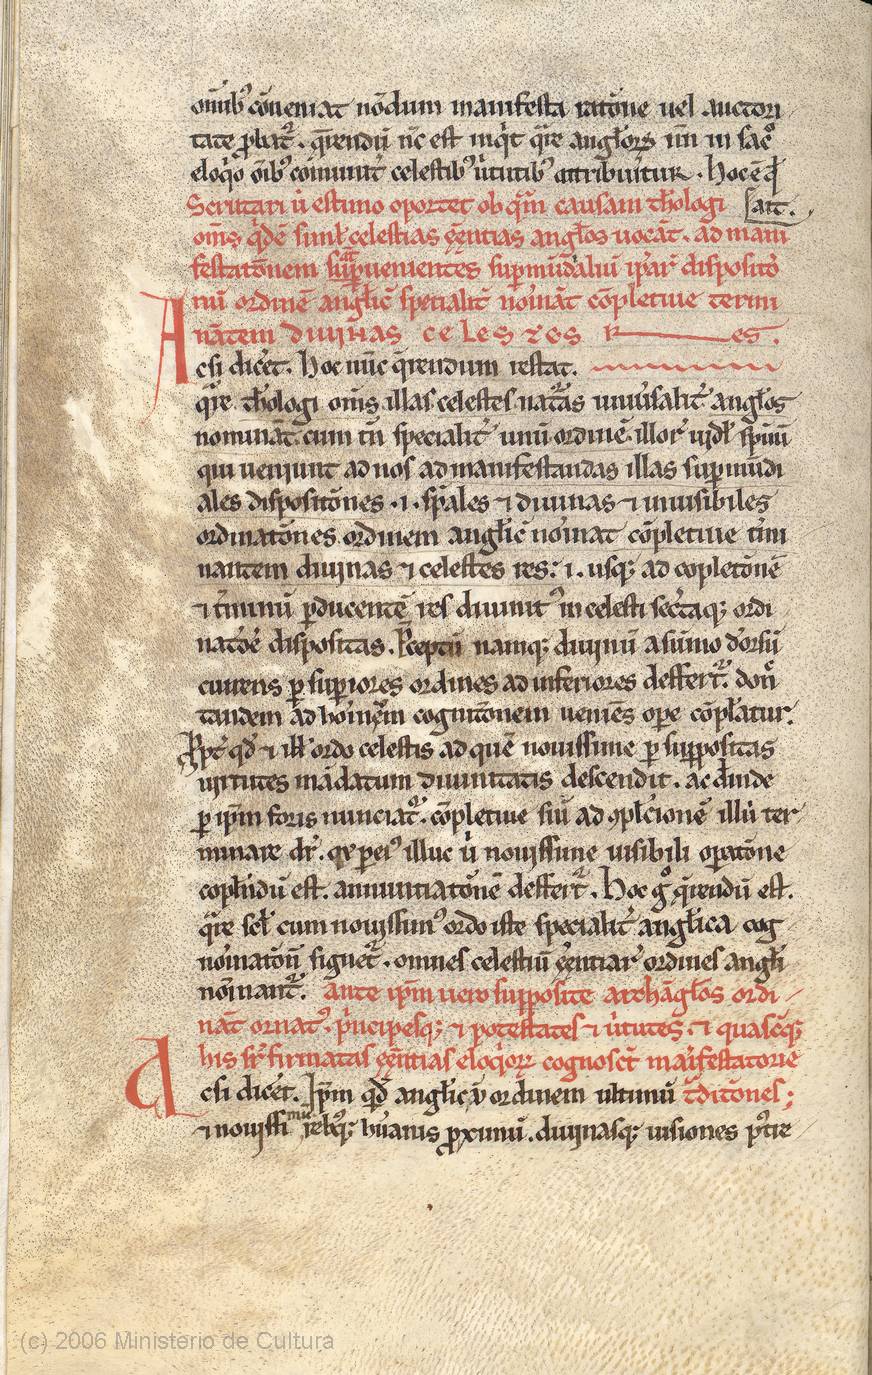 omib᷒ cōueniat nōdum manifesta ratōne uel auctori
tate p̱bat᷑. q̄rendū nc̄ est inq͛t qͣre angl̄oꝝ nn̄ in sac᷒
eloq͛o ōib᷒ cōmunit᷑ celestib᷒ u͛tutib᷒ attribuūtur. Hoc ē ꝙ
Scrutari u̇ estimo oportet ob qͣm causam th̄ologi ⌊ait.
om̄s q͛dē siml̄ celestias ęēntias angl̄os uocāt. ad mani
festatōnem suꝑuenientes suꝑmūdaliū ip̄aꝝ disposito
nū ordinē anglic̄ specialit᷑ noīāt cōpletiue termi
nātem diuinas celestes R es.
Ac si dicet᷑. hoc nūc q̄rendum restat.
qͣre th̄ologi om̄s illas celestes nat᷑as uniu͛salit᷑ angl̄os
nominat᷑. cum tn̄ specialit᷑ unū ordinē illoꝝ uidl̄ sp̄uū
qui ueniunt ad nos ad manifestandas illas suꝑmūdi
ales dispositōnes .i. sp̄ales ⁊ diuinas ⁊ inuisibiles
ordinatōnes. ordinem anglic̄ noīat cōpletiue t͛mi
nantem diuinas ⁊ celestes res: .i. usq; ad cōpletōnē
⁊ t͛minū ꝑducentē res diuinit᷒ in celesti sec᷑taq; ordi
natōe dispositas. P̄ceptū namq; diuinū a sūmo d᷑orsū
currens ꝑ suꝑiores ordines ad inferiores deffert᷑. don᷒
tandem ad hoīem cognitōnem ueniēs ope cōplat᷑ur.
P̱pt᷑ qd̄ ⁊ ill̄ ordo celestis ad quē nouissime ꝑ suppositas
uirtutes mādatum diuinitatis descendit. ac d᷑inde
ꝑ ip̄m foris nunciat᷑. cōpletiue siu͛ ad ꝯplēcionē illū ter
minare dr̄. qꝛ ꝑ ei᷒ illuc u̇ nouissime uisibili oꝑatōne
coplndū est. annuntiatōnē deffert᷑. Hoc g᷒ q̄rendū est.
qͣre sc̄l cum nouissim᷒ ordo iste specialit᷑ anglica cog
noīatōn̄ signet᷑. omnes celestiū ęēntiaꝝ ordines angl̄i
nōinant᷑. Ante ip̄m uero supposite archāgl̄os ordi
nāt ornat᷒. p͛ncipesq; ⁊ potestates ⁊ u͛tutes. ⁊ quascūq;
his sr̄ firmatas ęēntias eloq͛oꝝ cognosc̄t maīfestatorie
Ac si dicet᷑. Ip̄m qd̄ē anglicū ordinem ultimū t͛ditōnes;
⁊ nouissimū rebq; hu͛anis ꝓximū. diuinasq; uisiones p᷑tre
(c) 2006 Ministerio de Cultura